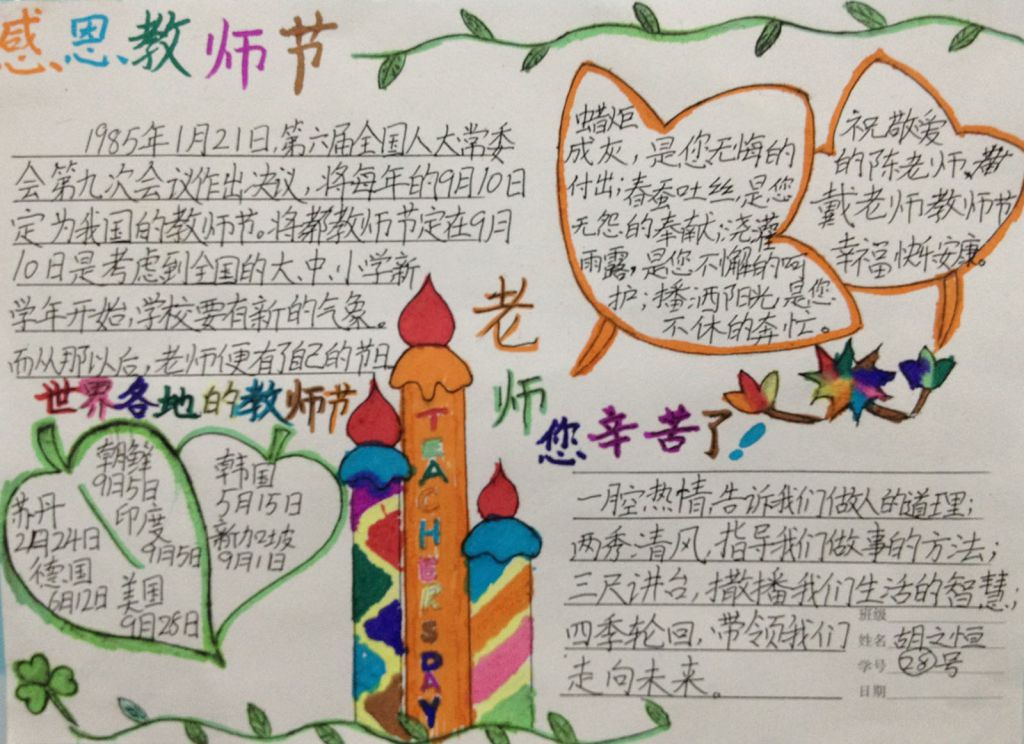 感恩教师节
1985年1月21日,第六届全国人大常委
会第九次会议作出决议,将每年的9月10日
定为我国的教师节。将教师节定在9月
10日是考虑到全国的大、中、小学新
学年开始,学校要有新的气象。
而从那以后,老师便有了自己的节日
蜡炬
成灰,是您无悔的
付出;春蚕吐丝,是您
无怨的奉献;浇灌
雨露,是您不懈的呵
护;播洒阳光,是您
不休的奔忙。
祝敬爱
的陈老师、
戴老师教师节
幸福快乐安康。
老
师
您辛苦了!
世界各地的教师节
朝鲜
9月5日
苏丹
2月24日
印度
9月5日
德国
6月12日
美国
9月28日
韩国
5月15日
新加坡
9月1日
TEACHERS DAY
一腔热情,告诉我们做人的道理;
两秀清风,指导我们做事的方法;
三尺讲台,撒播我们生活的智慧;
四季轮回,带领我们
走向未来。
班级
姓名 胡文恒
学号 28号
日期